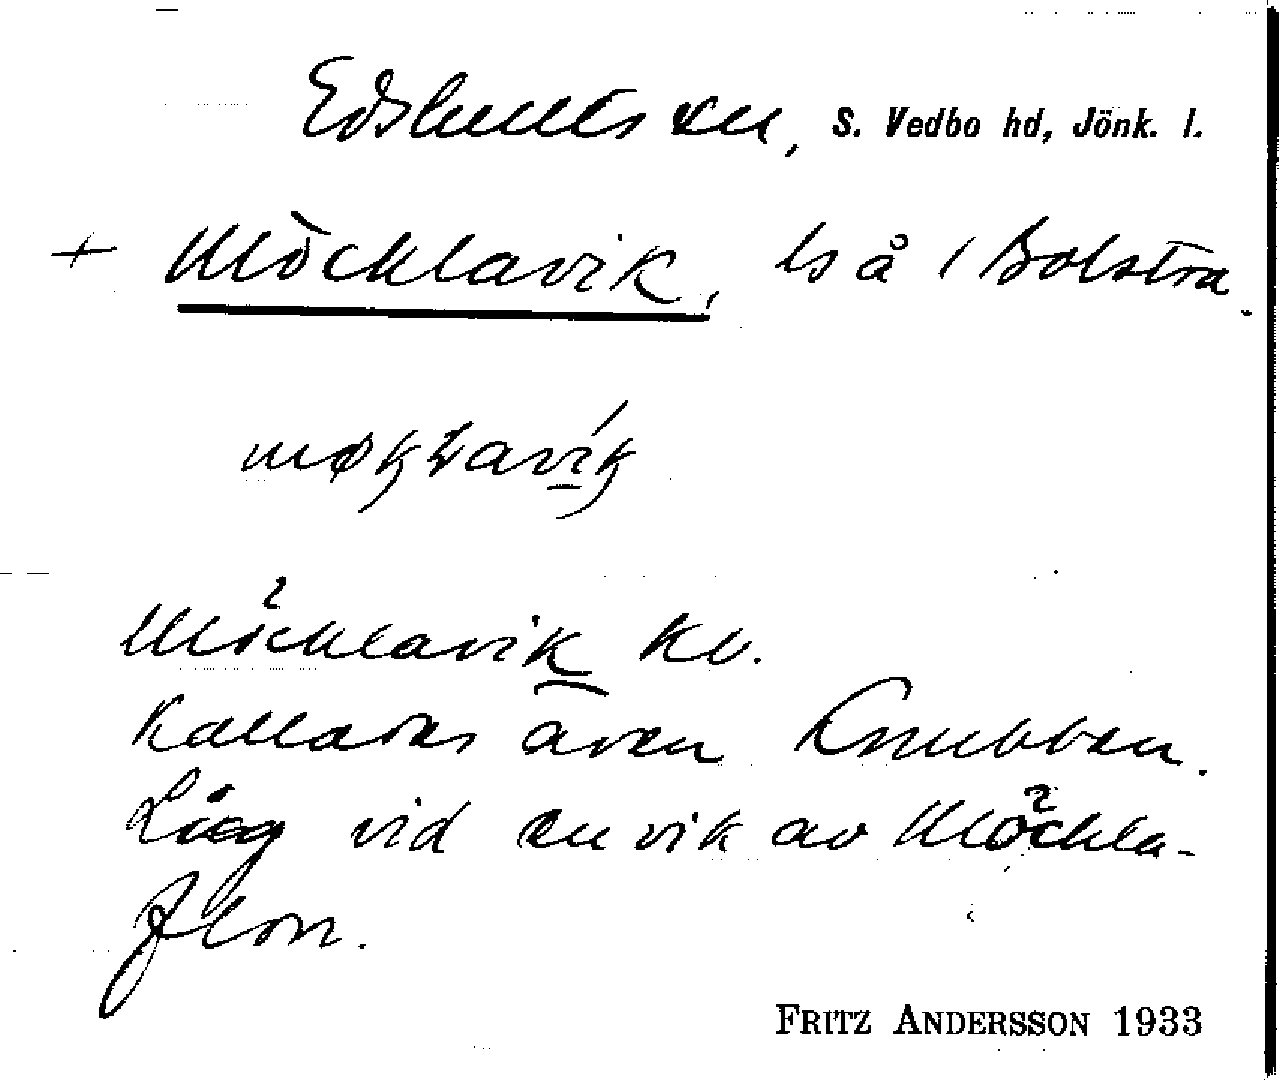 Edshults sn, S. Vedbo hd, Jönk. l.
+ Möcklavik, ls å / Bolstra.
Möcklavik kv.
Kallades även Knubben.
Låg vid en vik av Möckla-
flon.
FRITZ ANDERSSON 1933